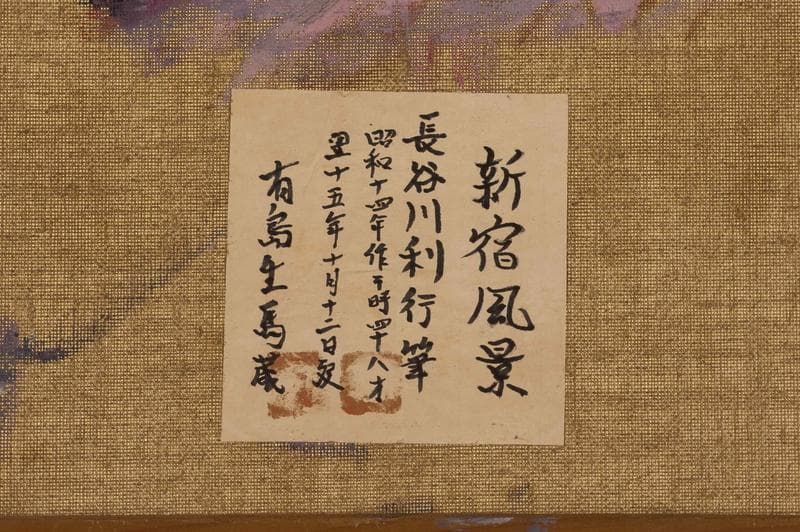 新宿風景
長谷川利行筆
昭和十四年作于時四十八才
翌十五年十月十二日歿
有島生馬蔵